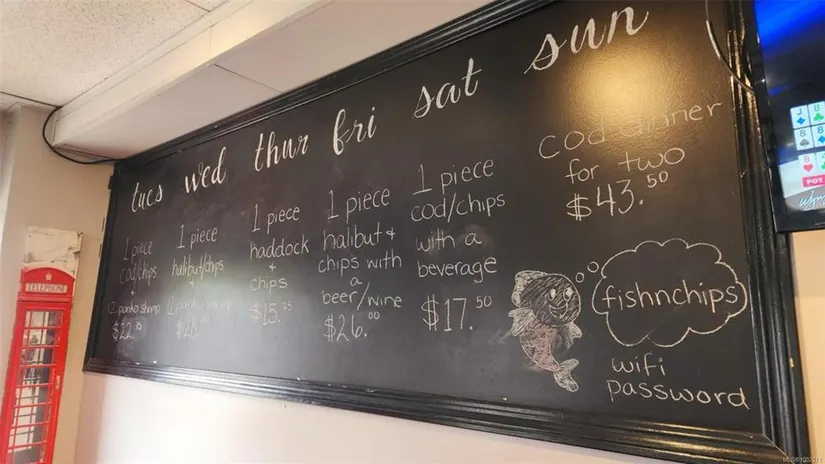 tues
1 piece
cod/chips
12 panko shrimp
wed
1 piece
halibut/chips
+
panko shrimp
thur
1 piece
haddock
+
chips
$15.
fri
1 piece
halibut +
chips with
a
beer/wine
$26.00
sat
1 piece
cod/chips
with a
beverage
$17.50
sun
cod dinner
for two
$43.50
fishnchips
wifi
password
TELEPHONE
J
8
8
8
8
POT